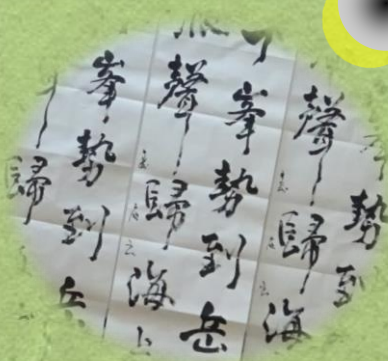 勢到
聲歸海
峯勢到岳
聲歸海上
峯勢到岳
歸